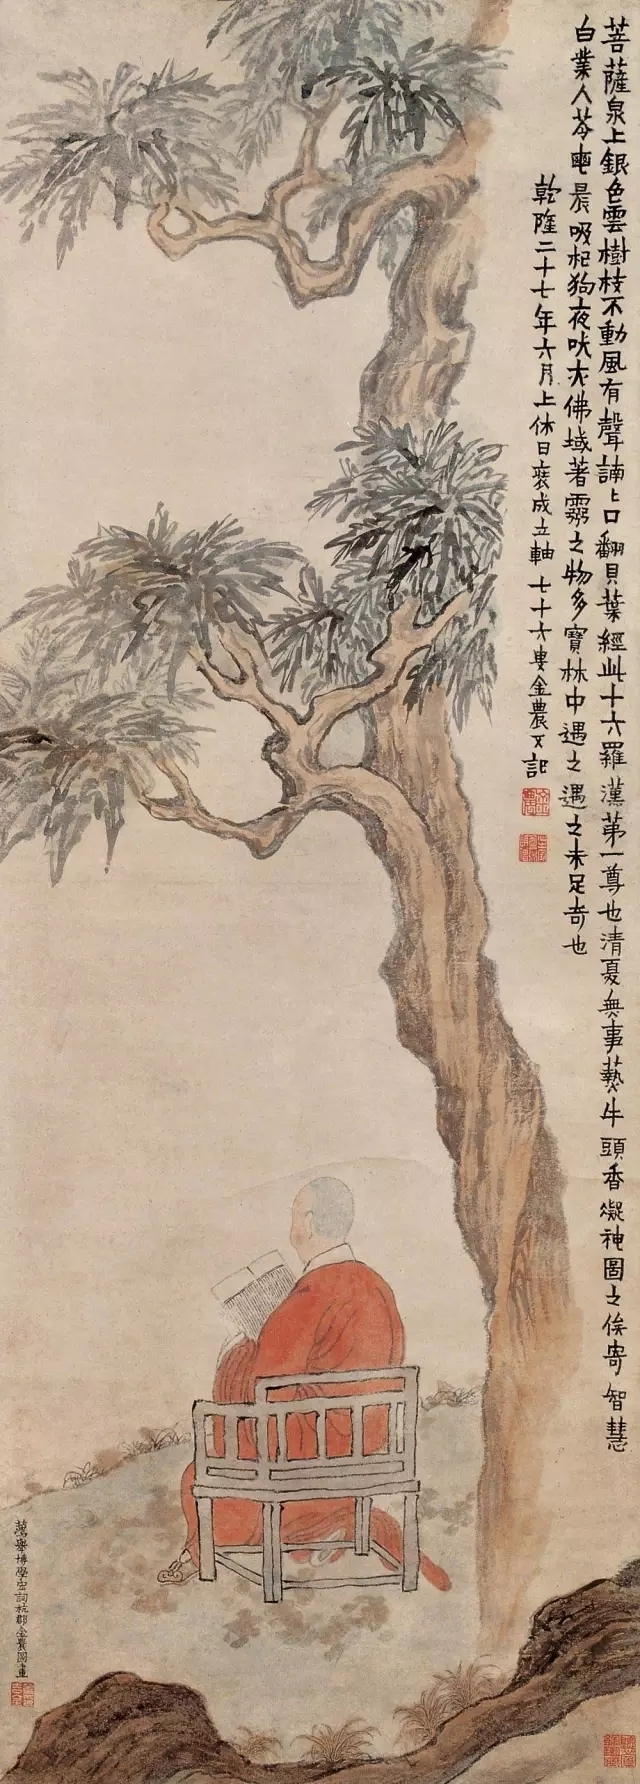 菩薩泉上銀色雲樹枝不動風有聲諵〻口翻貝葉經此十六羅漢第一尊也清夏無事爇牛頭香凝神圖之俟寄智慧
白業人苓龜晨吸杞狗夜吠佛域著靈之物多寶林中遇之遇之未足奇也
乾隆二十七年六月上休日裝成立軸七十六叟金農又記
薦舉博學宏詞杭郡金農圖畫